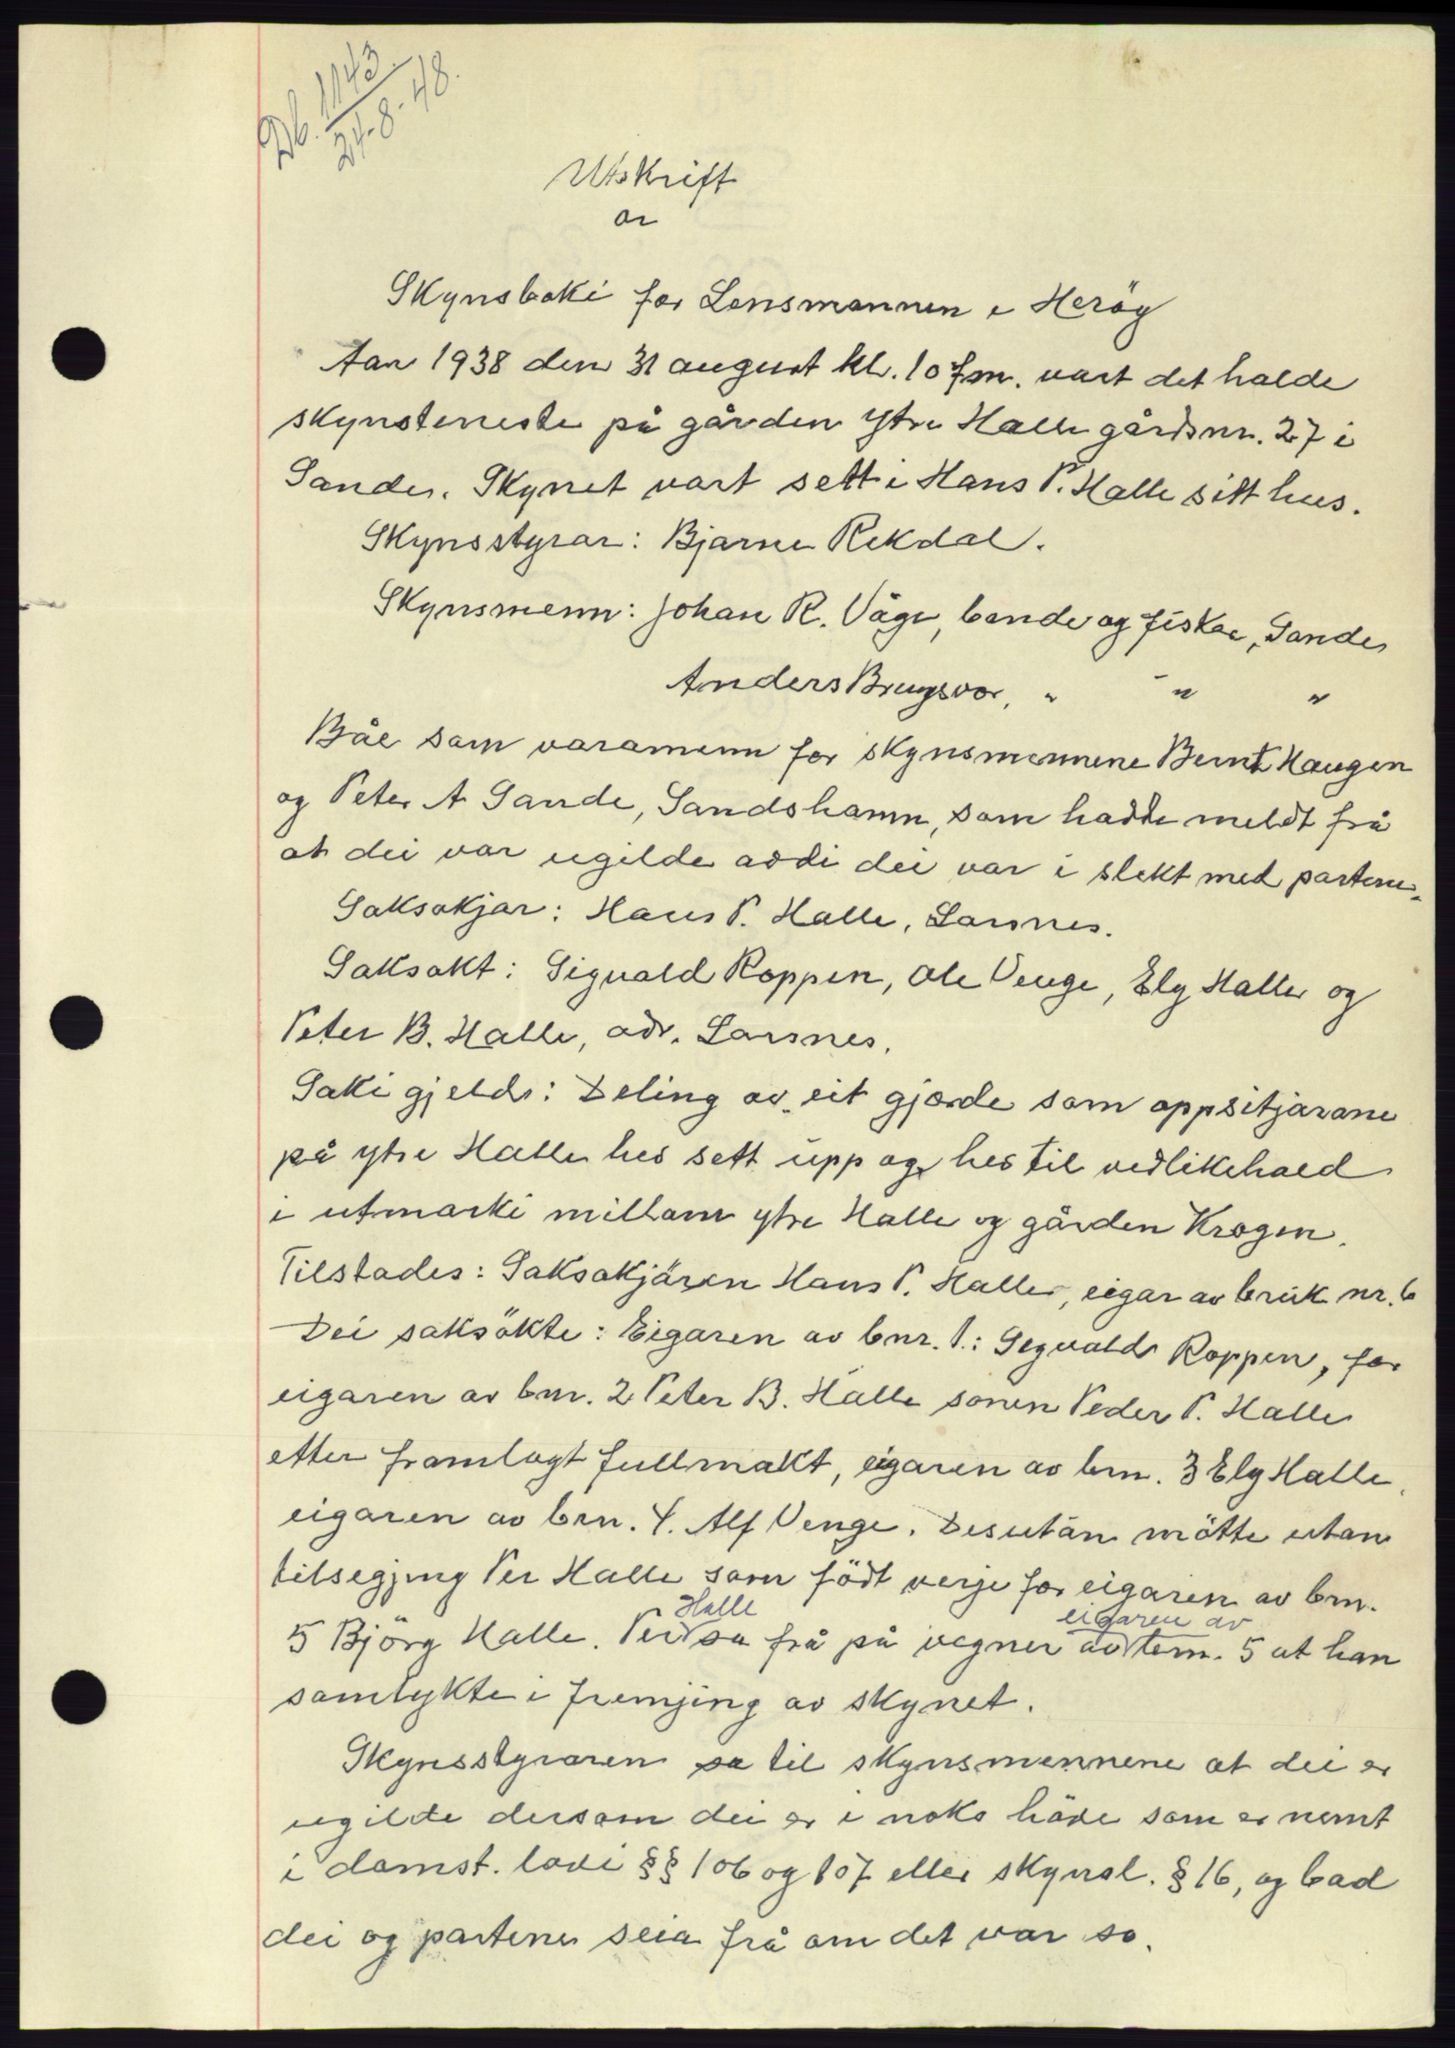 Db. 1143.
24-8-48.
Utskrift
or
Skynsboki for Lensmannen i Heröy
Aar 1938 den 31 august kl. 10 fm. vart det halde
skynsteneste på gården Ytre Halle gårdsnr. 27 i
Sande. Skynet vart sett i Hans P. Halle sitt hus.
Skynsstyrar: Bjarne Rekdal.
Skynsmenn: Johan R. Våge, bonde og fiskar, Sande
Anders Bringsvor, " " "
Båe som varamenn for skynsmennene Bernt Haugen
og Peter A Sande, Sandshamn, som hadde meldt frå
at dei var ugilde avdi dei var i slekt med partene.
Saksøkjar: Hans P. Halle, Larsnes.
Saksøkt: Sigvald Roppen, Ole Venge, Ely Halle og
Peter B. Halle, adr. Larsnes.
Saki gjeld: Deling av eit gjærde som oppsitjarane
på ytre Halle hes sett upp og hes til vedlikehald
i utmarki millom ytre Halle og gården Krogen.
Tilstades: Saksøkjaren Hans P. Halle, eigar av bruk nr. 6
Dei saksökte: Eigaren av bnr. 1.: Segvald Roppen, for
eigaren av bnr. 2 Peter B. Halle sonen Peder P. Halle
etter framlagt fullmakt, eigaren av bnr. 3 Ely Halle,
eigaren av brn. 4. Alf Venge. Desutan mötte utan
tilsegjing Per Halle som födt verje for eigaren av brn.
5 Björg Halle. Per Halle sa frå på vegner av eigaren av brn. 5 at han
samtykte i fremjing av skynet.
Skynsstyraren sa til skynsmennene at dei er
ugilde dersom dei er i noko höve som er nemt
i domst. lovi §§ 106 og 107 eller skynsl. § 16, og bad
dei og partene seia frå om det var so.